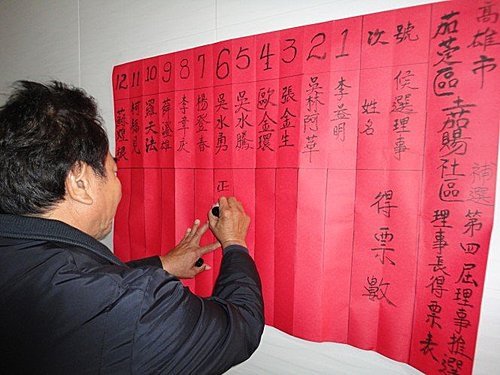 高雄市
茄萣區嘉賜社區 補選第四屆理事推選
理事長得票表
號次
候選理事
姓名
得票數
1 李益明
2 吳林阿草
3 張金生
4 歐金環
5 吳水騰
6 吳水勇 正
7 楊登春
8 李章庆
9 薛
10 羅天法
11 柯
12